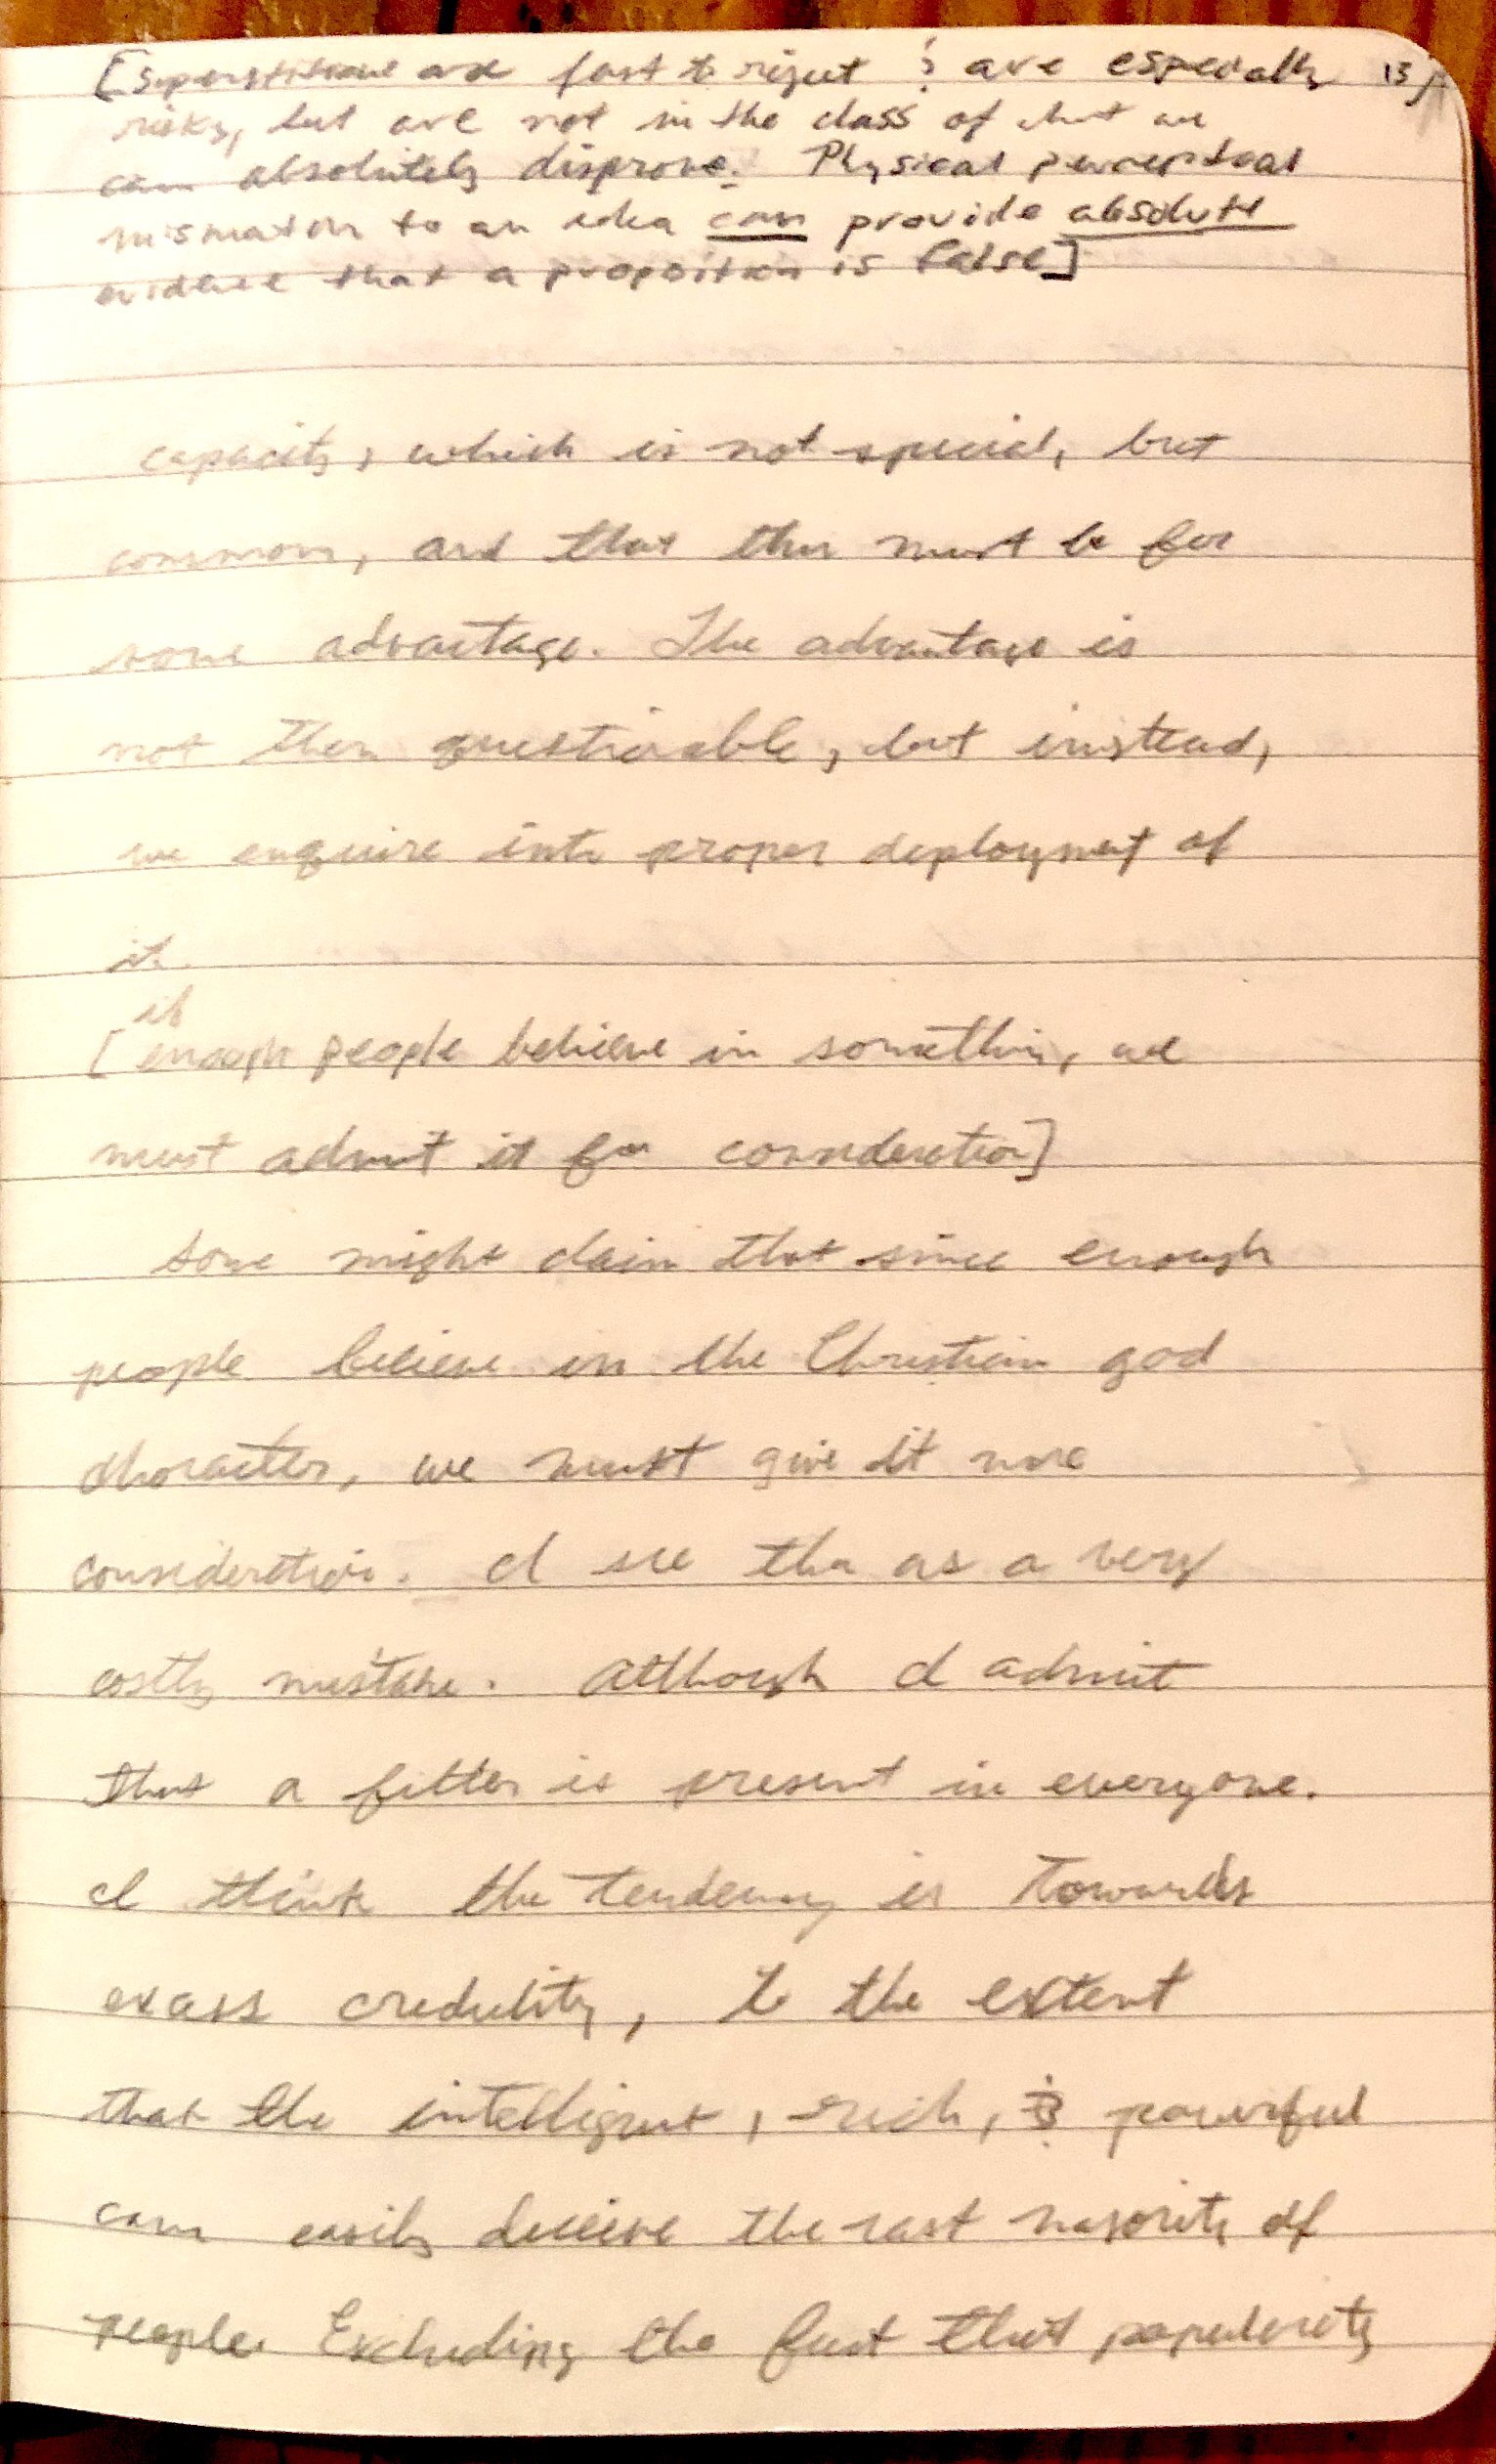 [Superstitions are fast to reject & are especially 15
risky, but are not in the class of what we
can absolutely disprove. Physical perceptual
mismatch to an idea can provide absolute
evidence that a proposition is false]
capacity, which is not special, but
common, and that this must be for
some advantage. The advantage is
not then questionable, but instead,
we enquire into proper deployment of
it.
if
[enough people believe in something, we
must admit it for consideration]
Some might claim that since enough
people believe in the Christian god
character, we must give it more
consideration. I see this as a very
costly mistake. Although I admit
that a filter is present in everyone.
I think the tendency is towards
excess credulity, to the extent
that the intelligent, rich, & powerful
can easily deceive the vast majority of
people. Excluding the fact that popularity